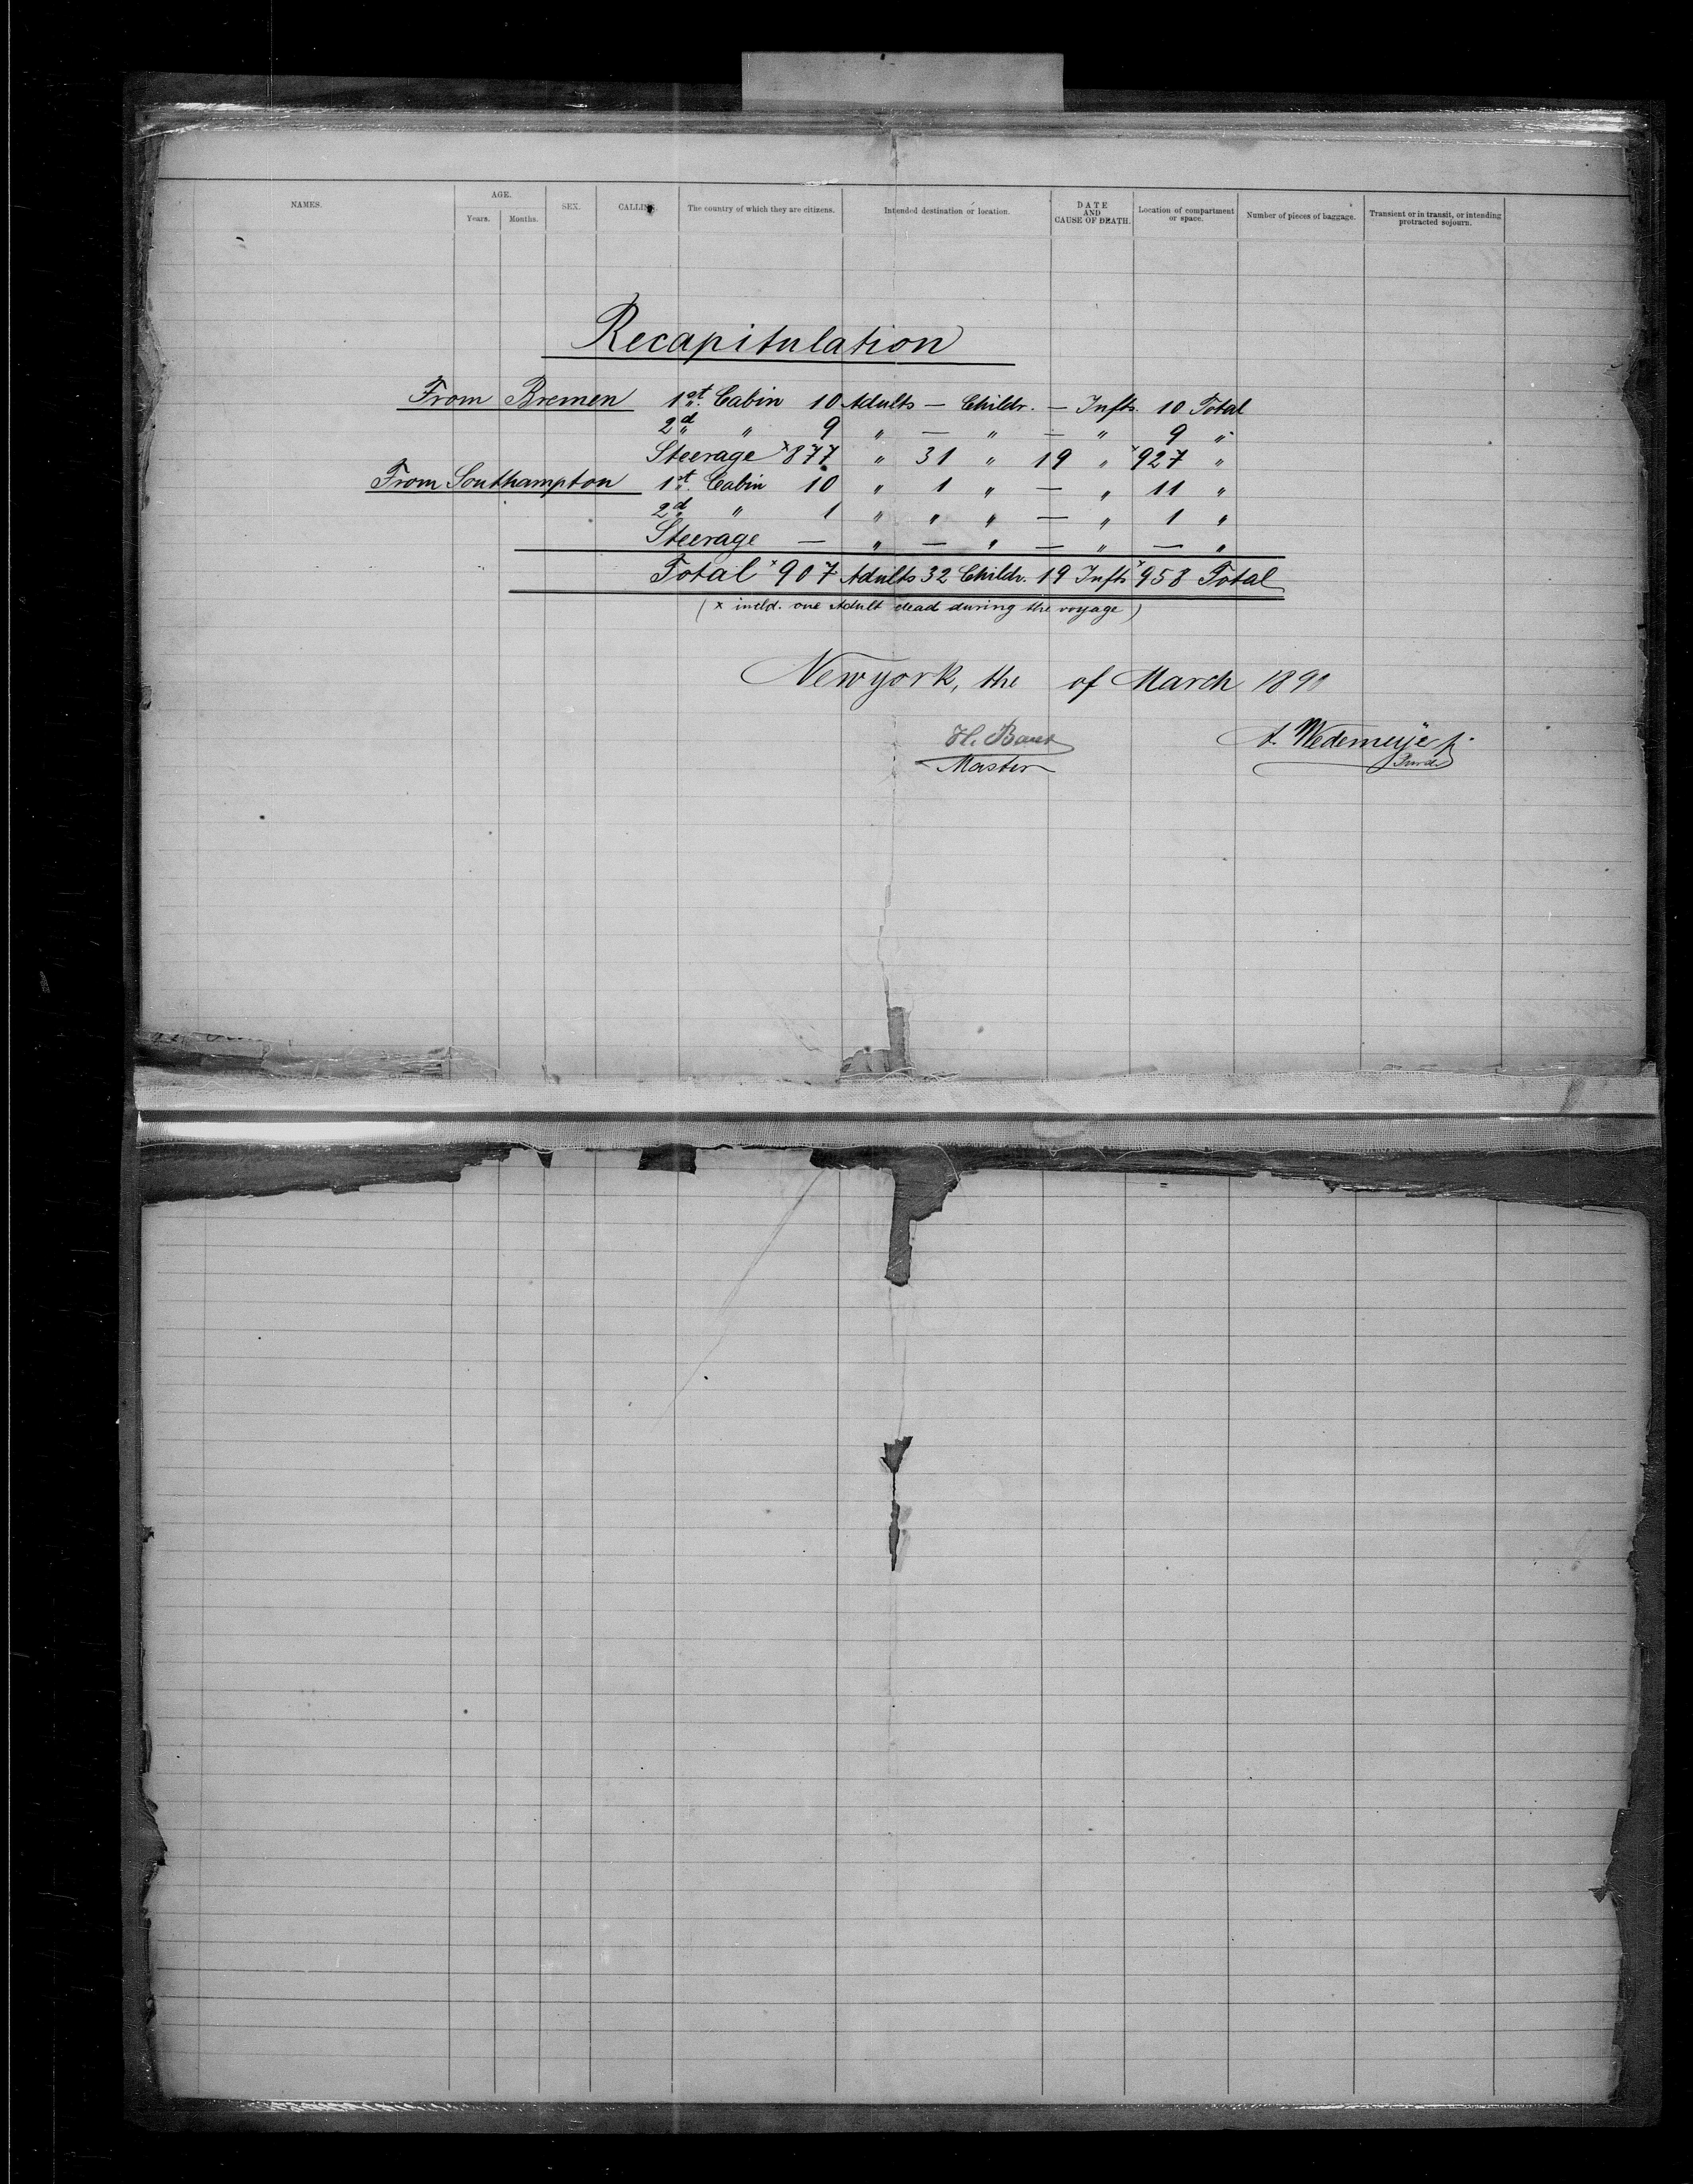 NAMES. AGE. SEX. CALLING. The country of which they are citizens. Intended destination or location. DATE AND CAUSE OF DEATH. Location of compartment or space. Number of pieces of baggage. Transient or in transit, or intending protracted sojourn.
Years. Months.
Recapitulation
From Bremen 1st. Cabin 10 Adults — Childr. — Infts. 10 Total
2d " 9 " — " — " 9 "
Steerage x877 " 31 " 19 " x927 "
From Southampton 1st. Cabin 10 " 1 " — " 11 "
2d " 1 " " " — " 1 "
Steerage — " — " — " — "
Total x907 Adults 32 Childr. 19 Infts x958 Total
( x incld. one Adult dead during the voyage )
New york, the of March 1890
H.
A. Wedemeyer
Master